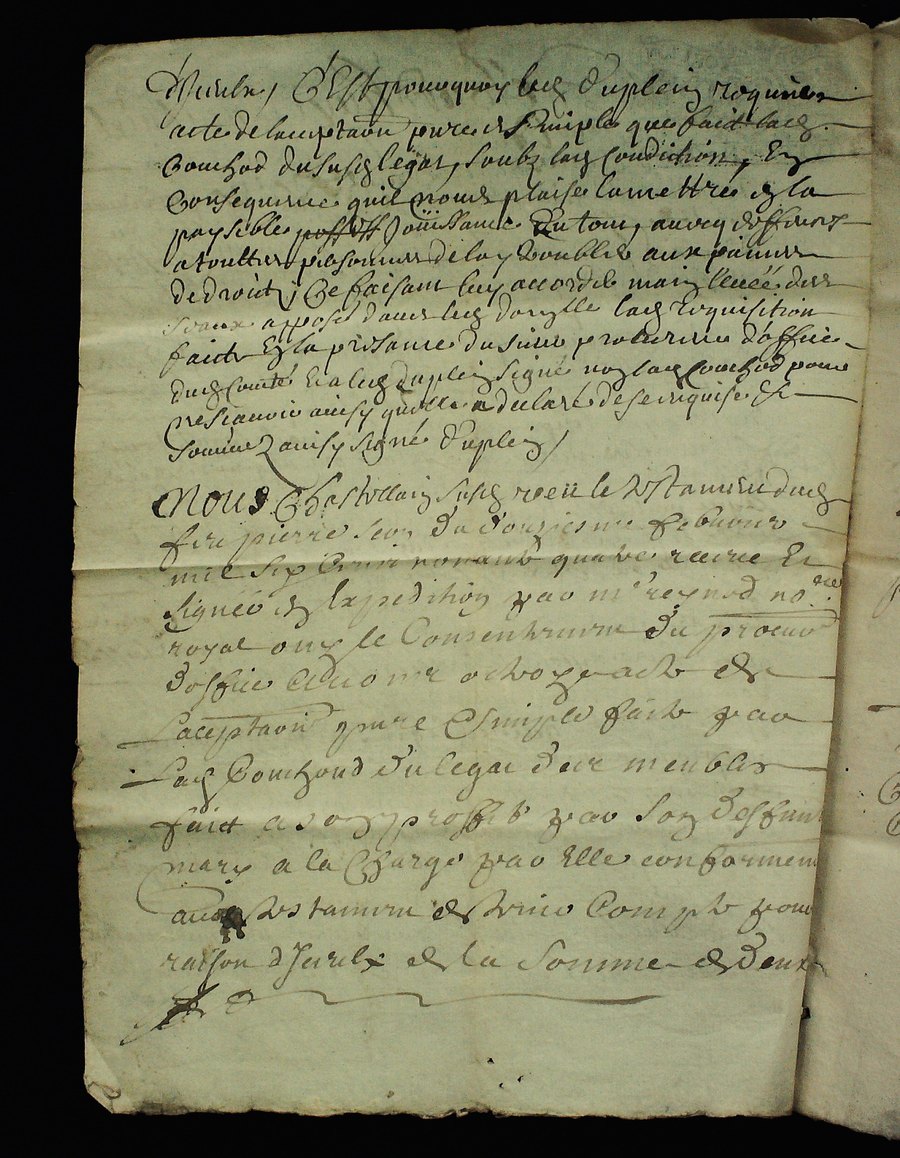 d'Iceulx, C'Est pourquoy led Duplein requier
acte de laceptaõn pure et simple que faict lad
Couchod du susd légat, soubz lad condiction, Et
Consequence quil nous plaise la mettre en la
paysible possess Jouissance En tour, avecq deffences
a touttes personnes de la y troubler aux peines
de droict, Ce faisant luy accorder main levée des
sceaux apposés lad Requisition
faicte En la presance du sieur procureur d'office
dud Comté Et a led Duplein signé non lad Couchod pour
ne scavoir ainsy quelle a declaré de ce enquise Et
sommée ainsy signé Duplein /
Nous Chastellain susd veu le testament dud
feu pierre du douziesme febvrier
mil six Cents nonante quatre receue Et
signée en Expedition par mr reynod nore
royal ouy le Consentement du procur
d'office avons octroye acte de
Laceptaõn pure Et simple faicte par
Lad Couchoud du legat des meubles
faict a son proffit par son deffunt
mary a la Charge par Elle conformement
aud testament de tenir Compte pour
raison d'Iceulx de la somme de deux